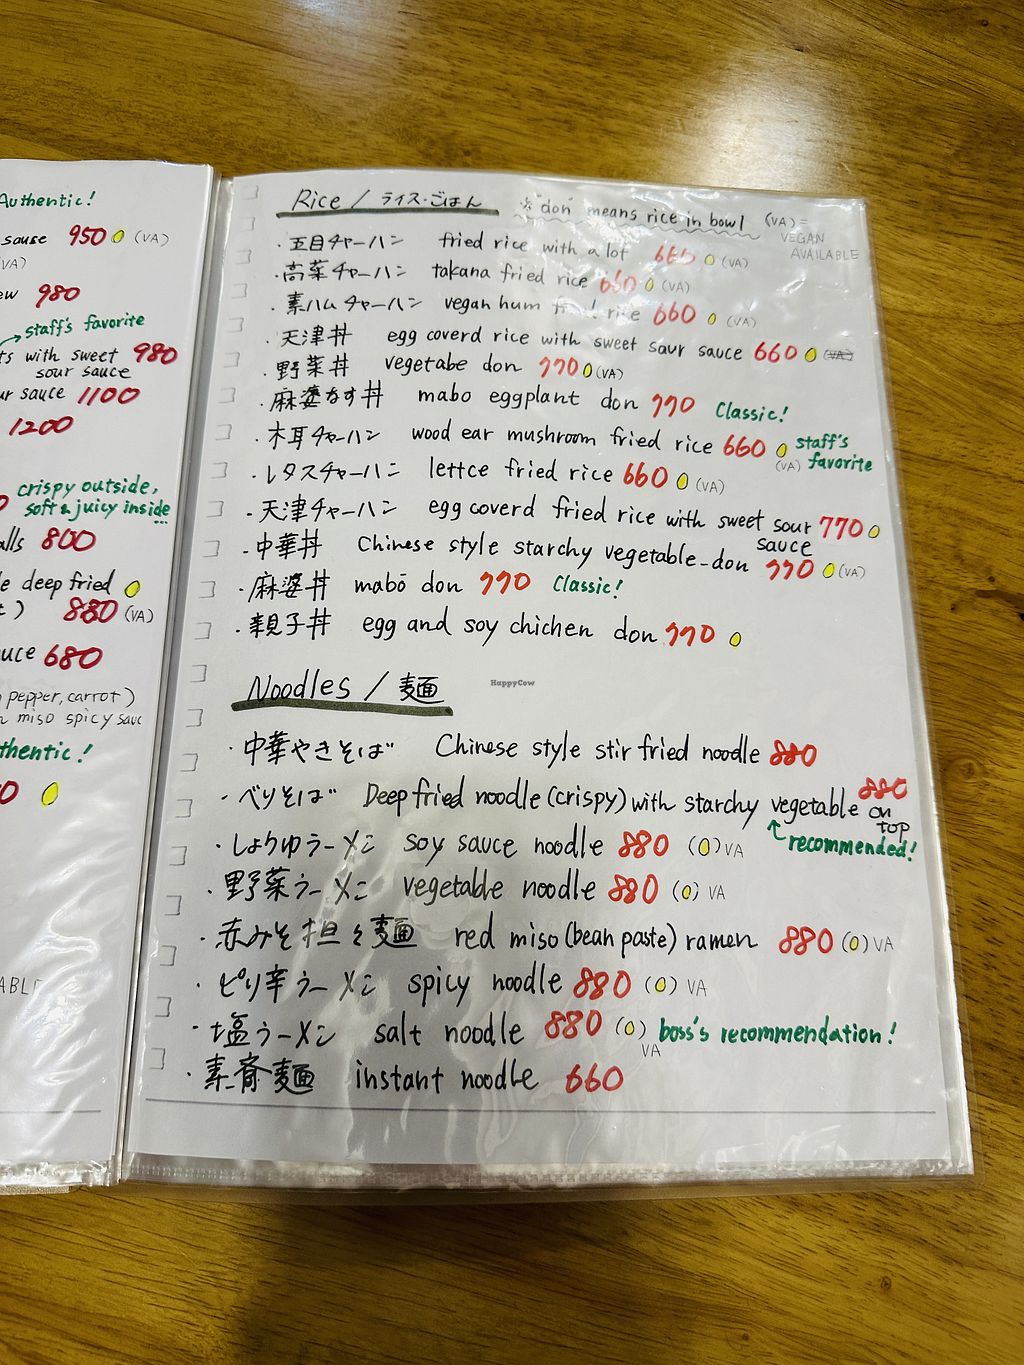 Authentic!
sauce 950 (VA)
(VA)
ew 980
staff's favorite
ts with sweet 980
sour sauce
ur sauce 1100
1200
crispy outside,
soft & juicy inside
...
alls 800
le deep fried
t) 880 (VA)
uce 680
pepper, carrot)
n miso spicy sauc
thentic!
0
ABLE
Rice / ライス・ごはん ※"don" means rice in bowl (VA) =
VEGAN
AVAILABLE
・五目チャーハン fried rice with a lot 660 (VA)
・高菜チャーハン takana fried rice 660 (VA)
・素ハムチャーハン vegan hum fried rice 660 (VA)
・天津丼 egg coverd rice with sweet saur sauce 660 (VA)
・野菜丼 vegetabe don 770 (VA)
・麻婆なす丼 mabo eggplant don 770 Classic!
・木耳チャーハン wood ear mushroom fried rice 660 (VA) staff's
favorite
・レタスチャーハン lettce fried rice 660 (VA)
・天津チャーハン egg coverd fried rice with sweet sour 770
sauce
・中華丼 Chinese style starchy vegetable-don 770 (VA)
・麻婆丼 mabō don 770 Classic!
・親子丼 egg and soy chichen don 770
HappyCow
Noodles / 麺
・中華やきそば Chinese style stir fried noodle 880
・べりそば Deep fried noodle (crispy) with starchy vegetable 880
on
top
recommended!
・しょうゆラーメン soy sauce noodle 880 (0) VA
・野菜ラーメン vegetable noodle 880 (0) VA
・赤みそ担々麺 red miso (bean paste) ramen 880 (0) VA
・ピリ辛ラーメン spicy noodle 880 (0) VA
・塩ラーメン salt noodle 880 (0) VA boss's recommendation!
・素斎麺 instant noodle 660